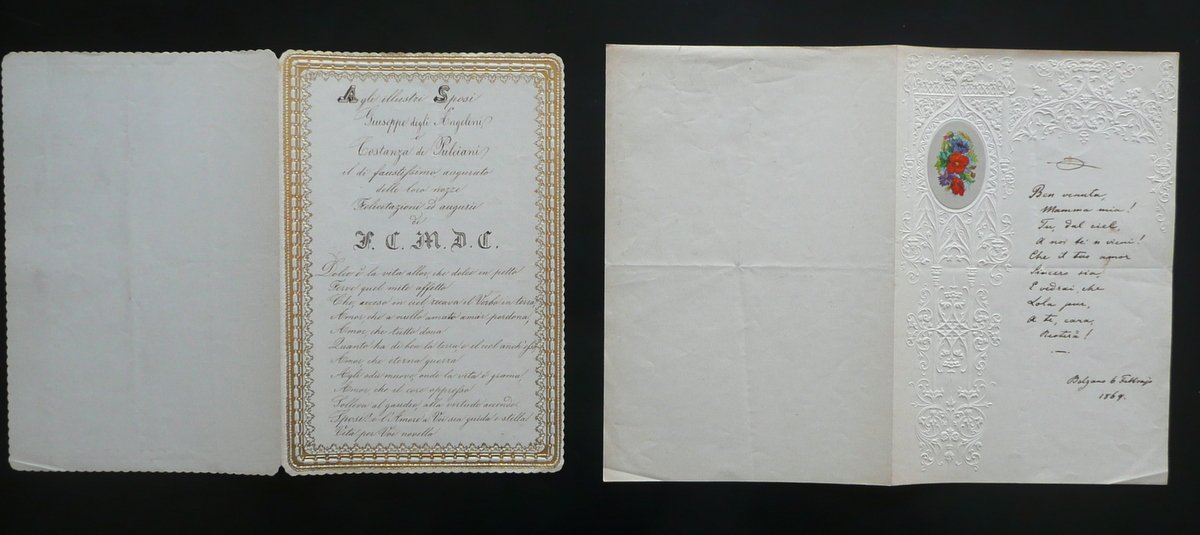 Agli illustri Sposi
Giuseppe degli Angelini
e
Costanza de Pulciani
il dì faustissimo augurato
delle loro nozze
Felicitazioni ed augurii
di
F. C. M. D. C.
Dolce è la vita allor, che dolce in petto
Ferve quel mite affetto
Che, acceso in ciel recava il Verbo in terra,
Amor che a nullo amato amar perdona,
Amor, che tutto dona
Quanto ha di ben la terra e il ciel
Amor che eterna guerra
Agli odii muove, onde la vita è grama,
Amor che il core oppresso
Solleva al gaudio, alla virtude accende
Sposi! è l'Amore a Voi sia guida e stella
Vita per Voi novella
Ben venuta,
Mamma mia!
Tu, dal ciel,
A noi te n vieni!
Che il tuo amor
Sincero sia,
E vedrai che
Lola pur,
A te, cara,
Bolzano 6 Febbrajo
1864.